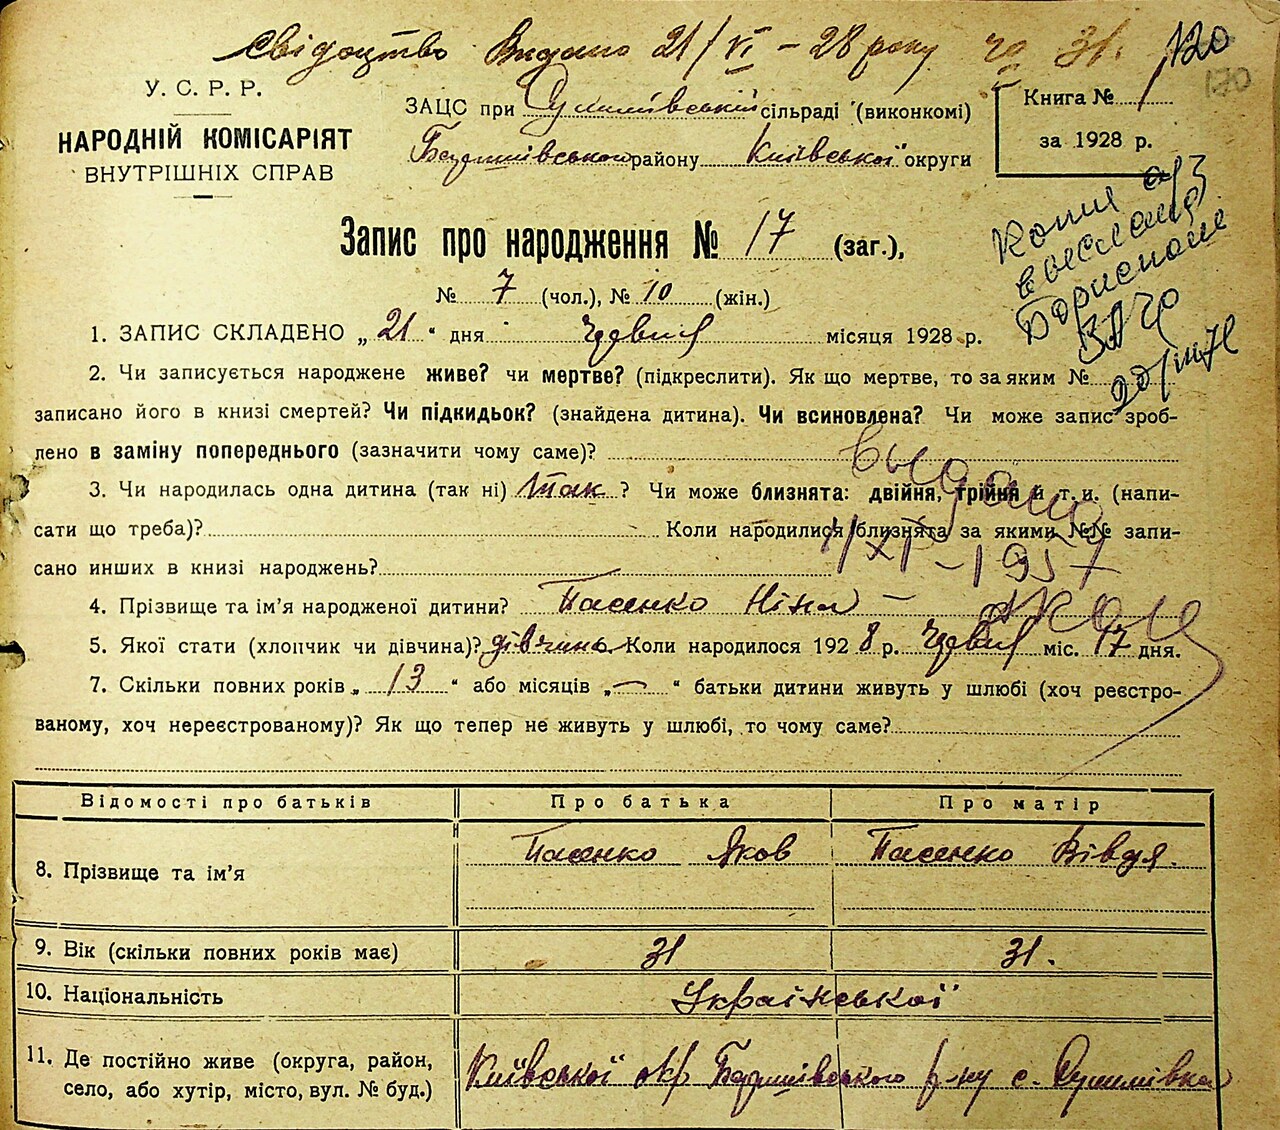 Свідоцтво видано 21/VI – 28 року за 31. 120
170
У. С. Р. Р.
НАРОДНІЙ КОМІСАРІЯТ
ВНУТРІШНІХ СПРАВ
ЗАЦС при Сулимівській сільраді (виконкомі)
району Київської округи
Книга № 1
за 1928 р.
Копия
выслана
20/III 71
Запис про народження № 17 (заг.),
№ 7 (чол.), № 10 (жін.)
1. ЗАПИС СКЛАДЕНО „ 21 “ дня Червня місяця 1928 р.
2. Чи записується народжене живе? чи мертве? (підкреслити). Як що мертве, то за яким №
записано його в книзі смертей? Чи підкидьок? (знайдена дитина). Чи всиновлена? Чи може запис зроб-
лено в заміну попереднього (зазначити чому саме)?
выдано
3. Чи народилась одна дитина (так ні) Так ? Чи може близнята: двійня, трійня й т. и. (напи-
сати що треба)? Коли народилися близнята за якими №№ запи-
сано инших в книзі народжень?
1/XII–1957
4. Прізвище та ім’я народженої дитини? Пасенко Ніна –
5. Якої стати (хлопчик чи дівчина)? дівчина Коли народилося 192 8 р. Червня міс. 17 дня.
7. Скільки повних років „ 13 “ або місяців „ — “ батьки дитини живуть у шлюбі (хоч реєстро-
ваному, хоч нереєстрованому)? Як що тепер не живуть у шлюбі, то чому саме?
Відомості про батьків Про батька Про матір
8. Прізвище та ім’я Пасенко Яков Пасенко Вівдя.
9. Вік (скільки повних років має) 31 31.
10. Національність Української
11. Де постійно живе (округа, район,
село, або хутір, місто, вул. № буд.) Київської окр р-ну с. Сулимівка